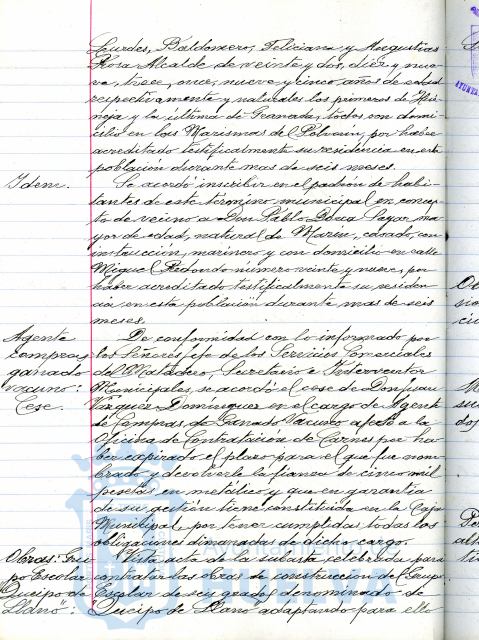 Lurdes, Baldomero, Feliciana y Angustias
Rosa Alcalde de veinte y dos, diez y nue-
ve, trece, once, nueve y cinco años de edad
respectivamente y naturales los primeros de
y la última de Granada, todos con domi-
cilio en las Marismas del Polvorín, por haber
acreditado testificalmente su residencia en esta
población durante mas de seis meses.
Idem.
Se acordó inscribir en el padrón de habi-
tantes de este término municipal en concep-
to de vecino a Don Pablo Payar, ma-
yor de edad, natural de Marín, casado, con
instrucción, marinero y con domicilio en calle
Miguel Redondo número veinte y nueve, por
haber acreditado testificalmente su residen-
cia en esta población durante mas de seis
meses.
Agente
compras
ganado
vacuno:
Cese.
De conformidad con lo informado por
los Señores Jefe de los Servicios Comerciales
del Matadero, Secretario e Interventor
Municipales, se acordó el cese de Don Juan
Vázquez Domínguez en el cargo de Agente
de Compras de Ganado Vacuno afecto a la
Oficina de Contratación de Carnes por ha-
ber expirado el plazo para el que fue nom-
brado y devolverle la fianza de cinco mil
pesetas en metálico y que en garantía
de su gestión tiene constituida en la Caja
Municipal, por tener cumplidas todas las
obligaciones dimanadas de dicho cargo.
Obras: Gru-
po Escolar
Queipo de
Llano":
Vista acta de la subasta celebrada para
contratar las obras de construcción del Grupo
Escolar de seis grados denominado de
"Queipo de Llano" adaptando para ello
Ayuntamiento